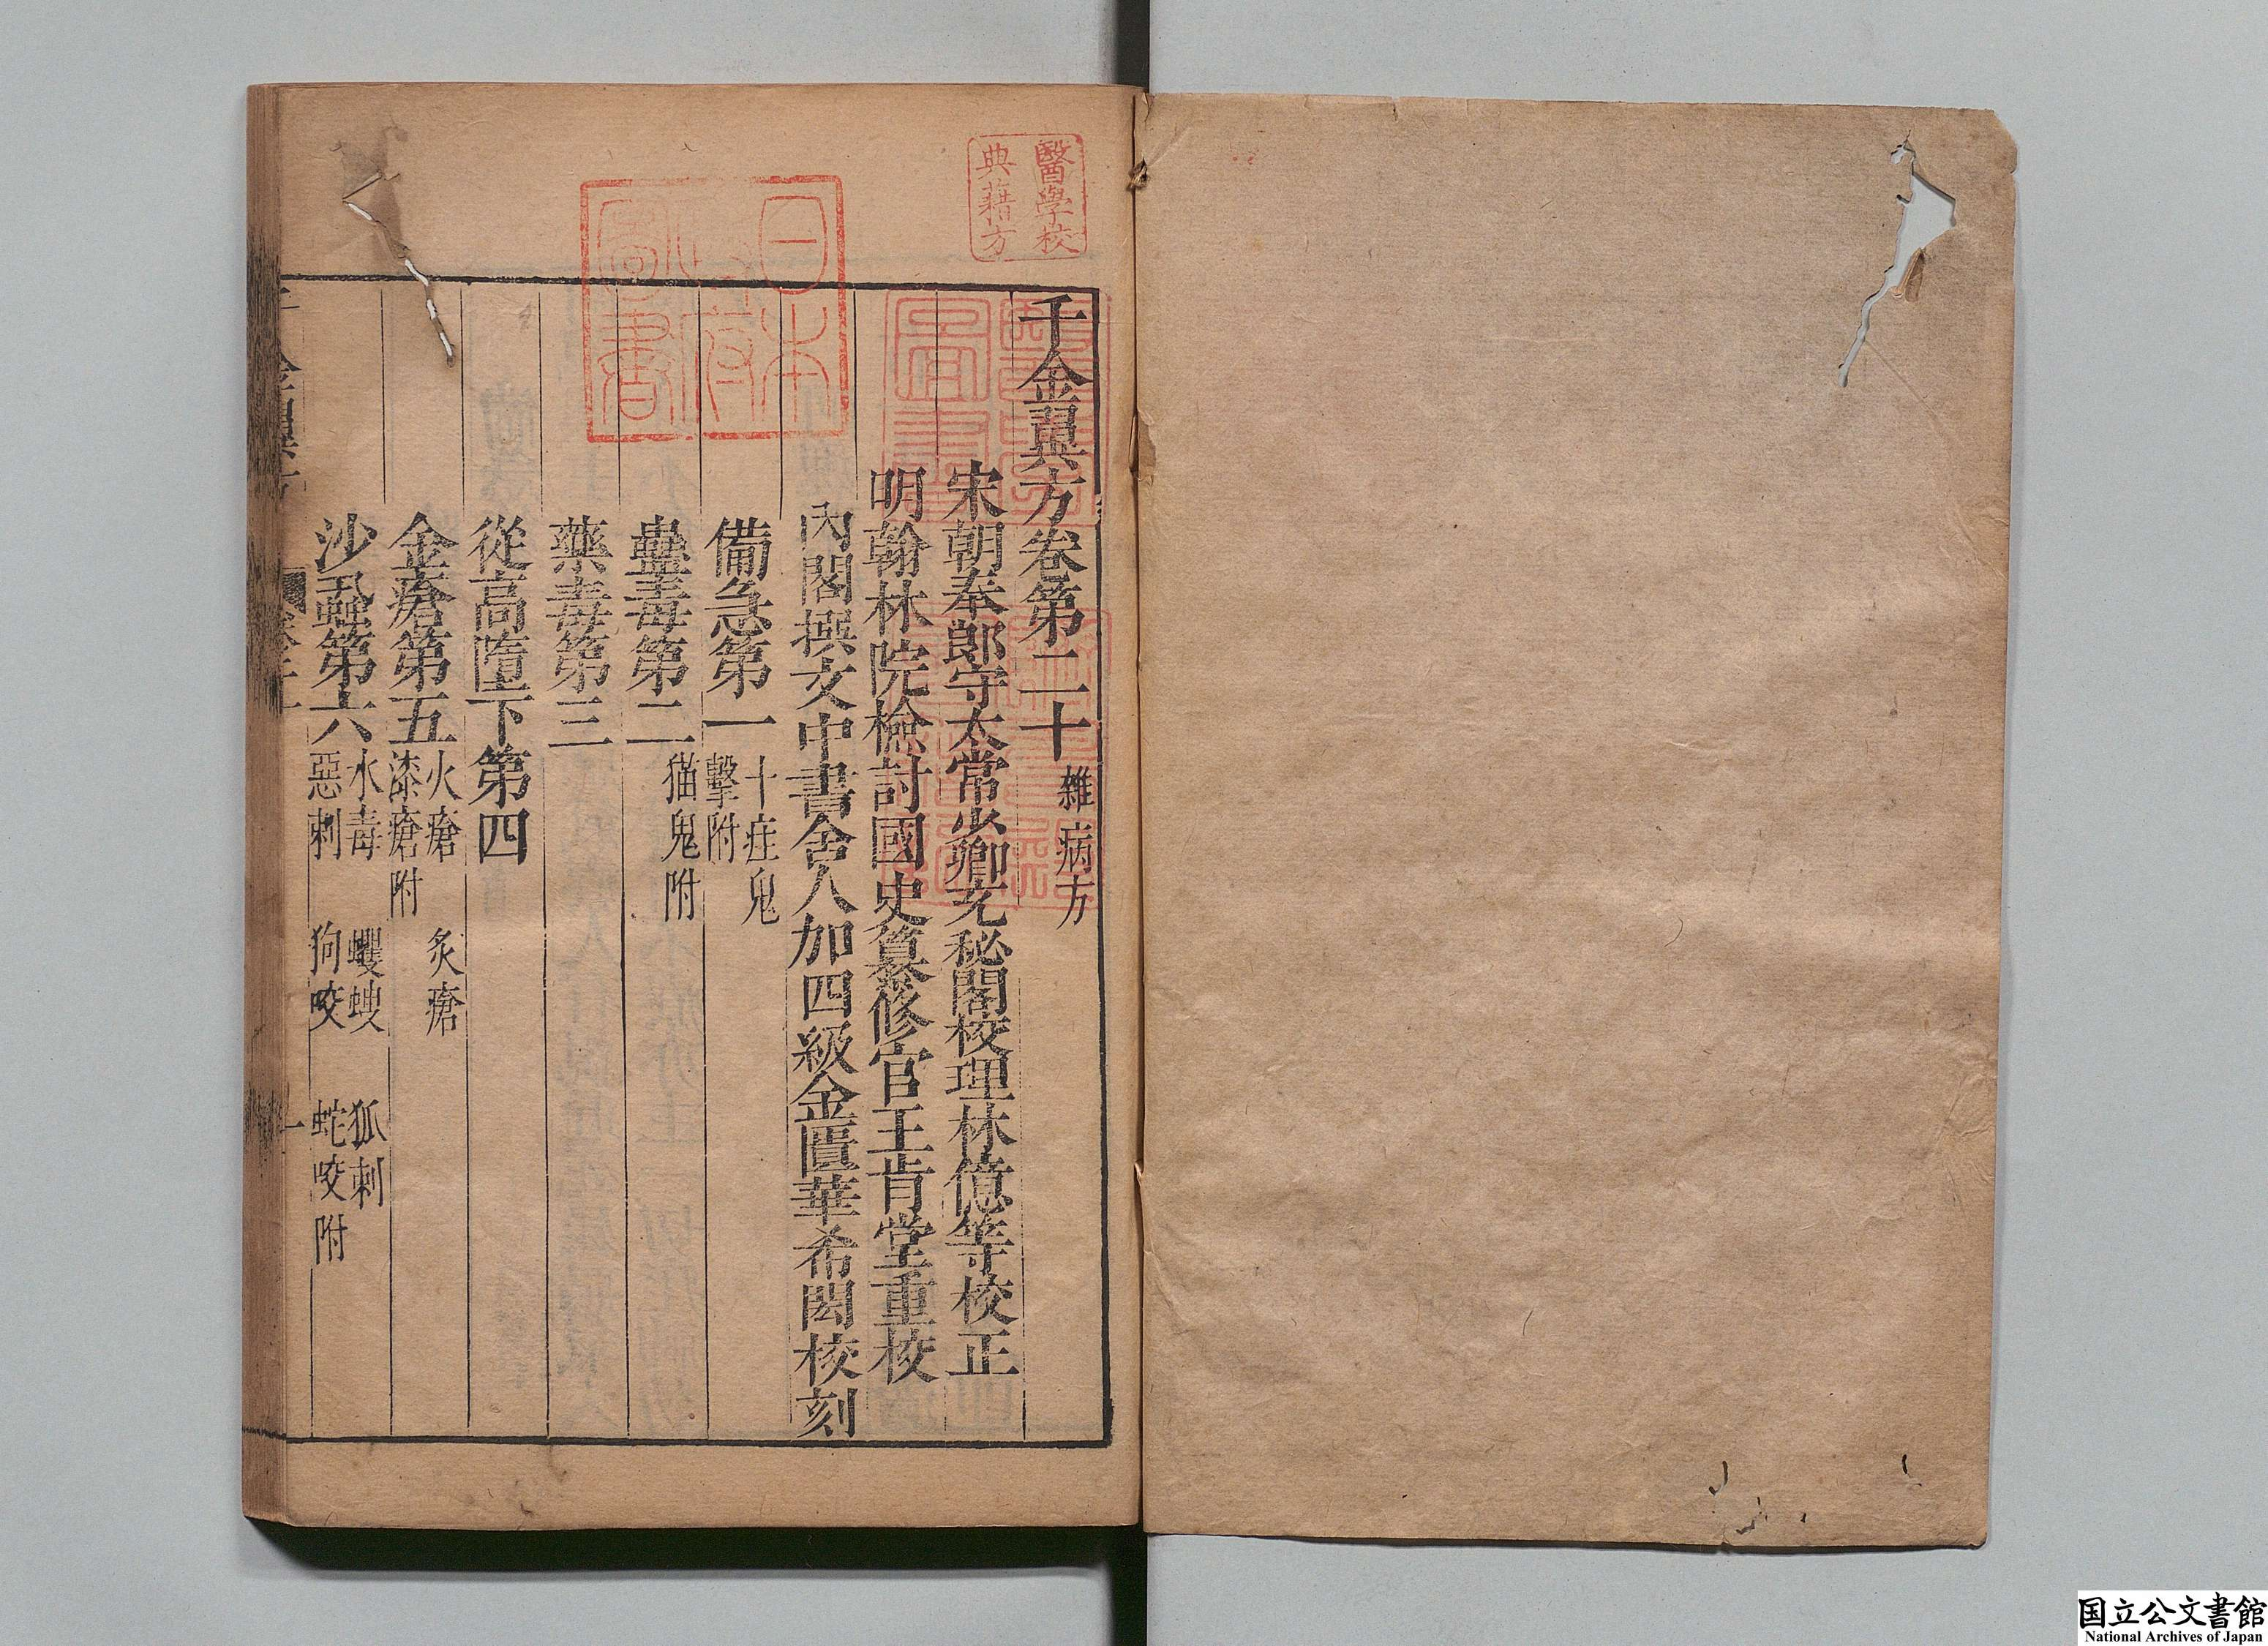 千金翼方卷第二十 雜病方
宋朝奉郎守太常少卿充秘閣校理林億等校正
明翰林院檢討國史纂修官王肯堂重校
內閣撰文中書舍人加四級金匱華希閎校刻
備急第一 十疰鬼
擊附
蠱毒第二 猫鬼附
藥毒第三
從高墮下第四
金瘡第五 火瘡 炙瘡
漆瘡附
沙虱第六 水毒 蠼螋 狐刺
惡刺 狗咬 蛇咬附
醫學校
典籍方
日本
政府
圖書
国立公文書館
National Archives of Japan